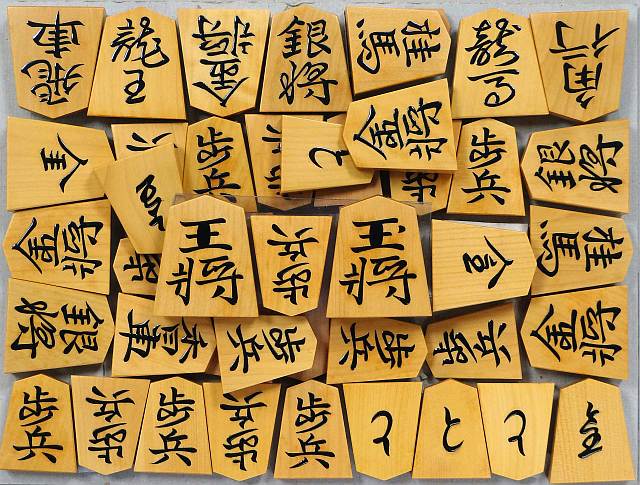 飛車
龍王
金将
銀将
桂馬
龍馬
角行
全
歩兵
歩兵
と
金将
歩兵
銀将
金将
王将
歩兵
王将
全
桂馬
銀将
香車
歩兵
歩兵
歩兵
金将
歩兵
歩兵
歩兵
歩兵
歩兵
と
と
と
全